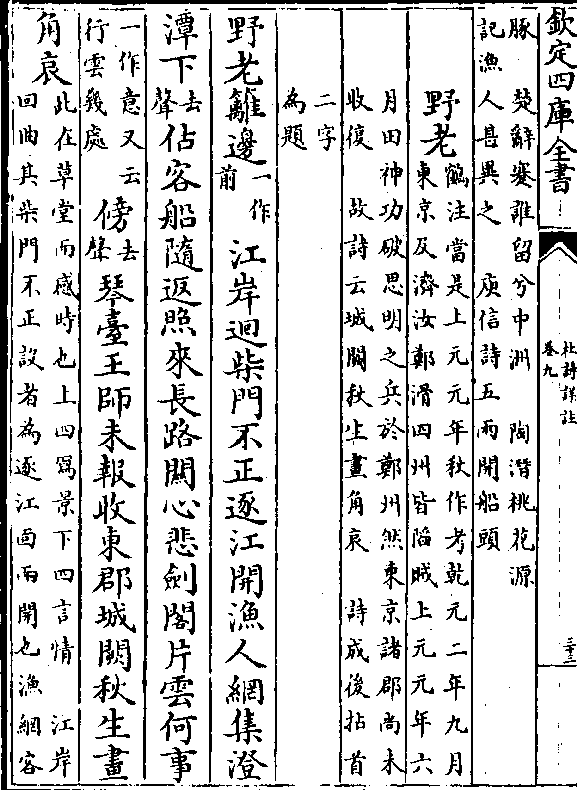 欽定四庫全書
杜詩詳註
卷九
三十三
豚 楚辭蹇誰留兮中洲 陶潛桃花源
記漁人甚異之 庾信詩五兩開船頭
野老
鶴注當是上元元年秋作考乾元二年九月
東京及濟汝鄭滑四州皆陷賊上元元年六
月田神功破思明之兵於鄭州然東京諸郡尚未
收復 故詩云城闕秋生畫角哀 詩成後拈首
二字
為題
野老籬邊一作前江岸迴柴門不正逐江開漁人網集澄
潭下去聲佔客船隨返照來長路關心悲劍閣片雲何事
一作意又云行雲幾處傍去聲琴臺王師未報收東郡城闕秋生畫
角哀
此在草堂而感時也上四寫景下四言情 江岸
回曲其柴門不正設者為逐江面而開也漁網客